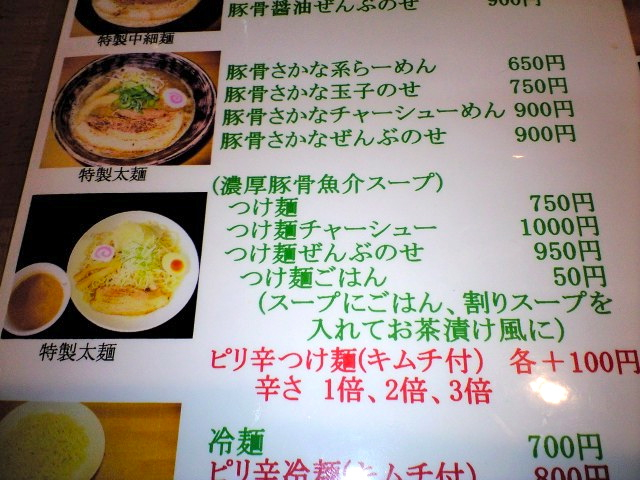 豚骨醤油ぜんぶのせ 900円
特製中細麺
豚骨さかな系らーめん 650円
豚骨さかな玉子のせ 750円
豚骨さかなチャーシューめん 900円
豚骨さかなぜんぶのせ 900円
特製太麺
(濃厚豚骨魚介スープ)
つけ麺 750円
つけ麺チャーシュー 1000円
つけ麺ぜんぶのせ 950円
つけ麺ごはん 50円
(スープにごはん、割りスープを
入れてお茶漬け風に)
特製太麺
ピリ辛つけ麺(キムチ付) 各+100円
辛さ 1倍、2倍、3倍
冷麺 700円
ピリ辛冷麺(キムチ付) 800円